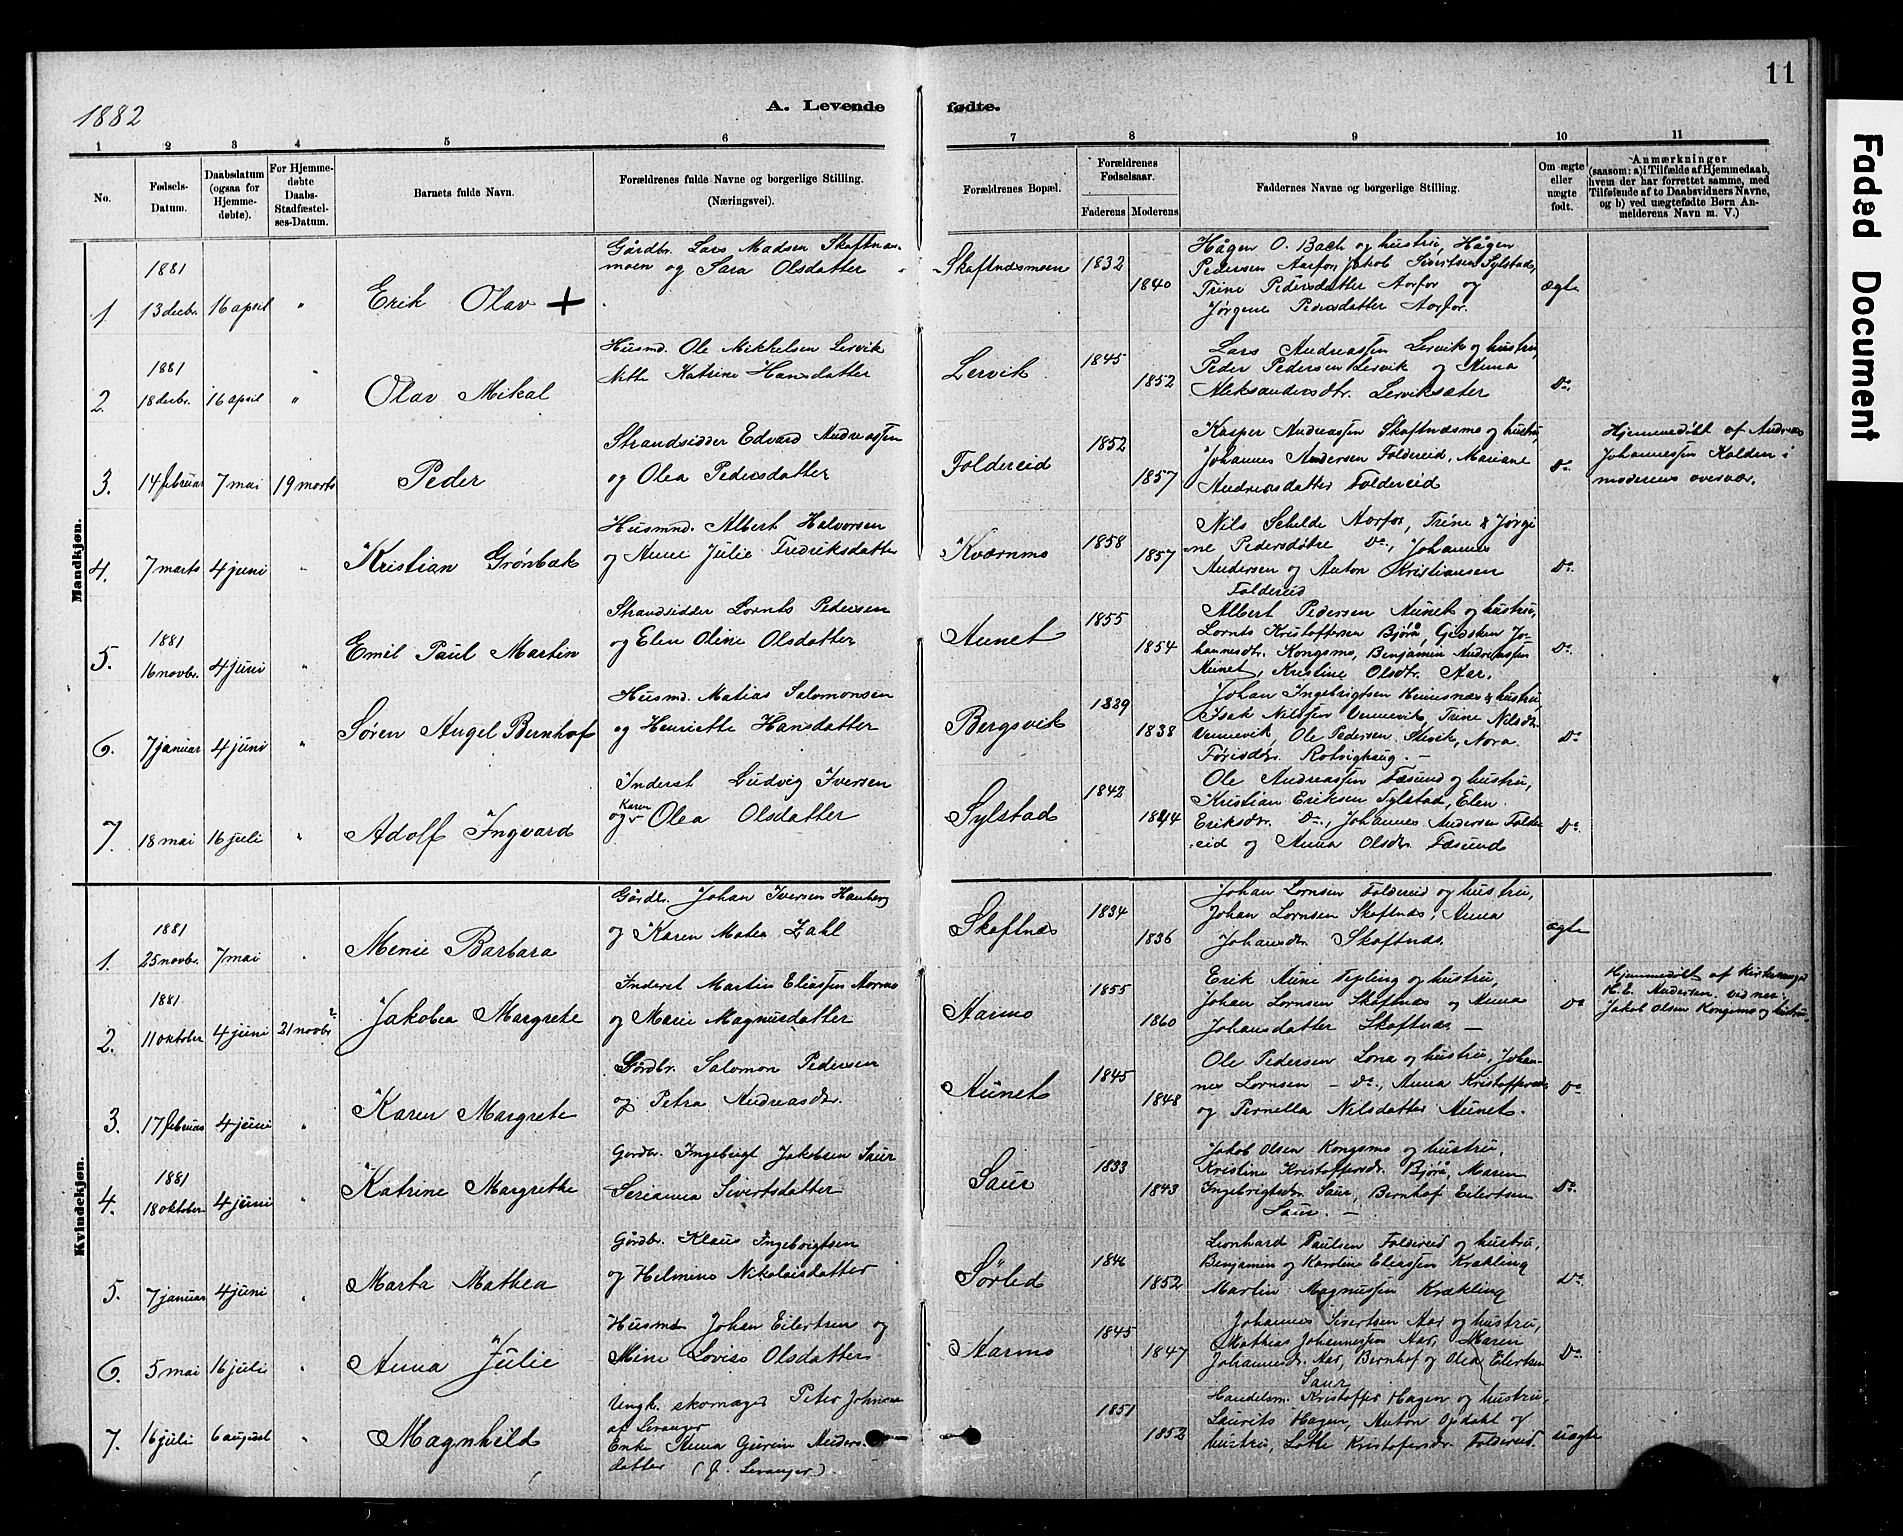 11
1882
A. Levende fødte.
1 2 3 4 5 6 7 8 9 10 11
No.
Fødsels-Datum.
Daabsdatum (ogsaa for Hjemmedøbte).
For Hjemmedøbte Daabs-Stadfæstelses-Datum.
Barnets fulde Navn.
Forældrenes fulde Navne og borgerlige Stilling. (Næringsvei).
Forældrenes Bopæl.
Forældrenes Fødselsaar.
Faderens Moderens
Faddernes Navne og borgerlige Stilling.
Om ægte eller uægte født.
Anmærkninger
(saasom: a) i Tilfælde af Hjemmedaab, hvem der har forrettet samme, med Tilføiende af to Daabsvidners Navne, og b) ved uægtefødte Børn Anmelderens Navn m. V.)
Mandkjøn.
1 1881 13 decbr. 16 april " Erik Olav +
Gårdbr. Lars Madsen Skaftnæsmoen og Sara Olsdatter
Skaftnæsmoen 1832 1840
Hågen O. Bach og hustru, Hågen
Pedersen Aarfor, Jakob Sivertsen Sylstad,
Trine Pedersdatter Aarfor og
Jørgine Pedersdatter Aarfor.
ægte
2. 1881 18 decbr. 16 april " Olav Mikal
Husmd. Ole Mikkelsen Lervik
Nette Katrine Hansdatter
Lervik 1845 1852
Lars Andreassen Lervik og hustru
Peder Pedersen Lervik og Anna
Aleksandersdtr. Lerviksæter
Do.
3. 14 februar 7 mai 19 marts Peder
Strandsidder Edvard Andreassen
og Olea Pedersdatter
Foldereid 1852 1857
Kasper Andreassen Skaftnæsmo og hustru
Johannes Andersen Foldereid, Mariane
Andreasdatter Foldereid
Do
Hjemmedøbt af Andreas
Johannessen Kalden i
moderens overvær.
4. 7 marts 4 juni " Kristian Grønbæk
Husmnd. Albert Halvorsen
og Anne Julie Fredriksdatter
Kværnmo 1858 1857
Nils Schelde Aarfor, Trine & Jørgi
ne Pedersdøtre Do., Johannes
Andersen og Anton Kristiansen
Foldereid
Do.
5. 1881 16 novbr. 4 juni " Emil Paul Martin
Strandsidder Lornts Pedersen
og Elen Oline Olsdatter
Aunet 1855 1854
Albert Pedersen Aunet og hustru,
Lornts Kristoffersen Bjørå, Gjedsken Jo-
hannesdtr. Kongsmo, Benjamin Andreassen
Aunet, Kristine Olsdtr. Aar.
Do.
6. 7 januar 4 juni " Søren Angel Bernhof
Husmd. Matias Salomonsen
og Henriette Hansdatter
Bergsvik 1839 1838
Johan Ingebrigtsen & hustru,
Isak Nilssen Vennevik, Trine Nilsdtr.
Vennevik, Ole Pedersen, Nora
Do
7. 18 mai 16 juli " Adolf Ingvard
Inderst Ludvig Iversen
og Karen Olea Olsdatter
Sylstad 1842 1844
Ole Andreassen Fæsund og hustru,
Kristian Eriksen Sylstad, Elen
Eriksdtr. Do., Johannes Andersen Folde
reid og Anna Olsdtr. Fæsund
Do.
Kvindekjøn.
1. 1881 25 novbr. 7 mai " Menie Barbara
Gårdbr. Johan Iversen Hauberg
og Karen Matea Zahl
Skaftnæs 1834 1836
Johan Lornsen Foldereid og hustru,
Johan Lornsen Skaftnæs, Anna
Johansdtr. Skaftnæs
ægte
2. 1881 11 oktober 4 juni 21 novbr. Jakobea Margrete
Inderst Martin Eliassen Aarmo
og Marie Magnusdatter
Aarmo 1855 1860
Erik Aune Tepling og hustru,
Johan Lornsen Skaftnæs og Anna
Johansdatter Skaftnæs
Do
Hjemmedøbt af kirkesanger
K. E. Andersen. vidner:
Jakob Olsen Kongsmo og hustru.
3. 17 februar 4 juni " Karen Margrete
Gårdbr. Salomon Pedersen
og Petra Andreasdtr.
Aunet 1845 1848
Ole Pedersen Lona og hustru, Johan-
nes Lornsen – Do., Anna Kristoffersd.
og Pernella Nilsdatter Aunet.
Do
4. 1881 18 oktober 4 juni " Katrine Margrethe
Gårdbr. Ingebrigt Jakobsen Saur
Serianna Sivertsdatter
Saur 1833 1843
Jakob Olsen Kongsmo og hustru,
Kristine Kristoffersdtr. Bjørå, Maren
Ingebrigtsdtr Saur, Bernhof Eilertsen
Saur.
Do.
5. 7 januar 4 juni " Marta Mathea
Gårdbr. Klaus Ingebrigtsen
og Helmine Nikolaisdatter
Sørlid 1846 1852
Leonhard Paulsen Foldereid og hustru,
Benjamin og Karoline Eliassen Krækling
Martin Magnussen Krækling
Do
6. 5 mai 16 juli " Anna Julie
Husmd Johan Eilertsen og
Mine Lovise Olsdatter
Aarmo 1845 1847
Johannes Sivertsen Aar og hustru,
Mathias Johannessen Aar, Maren
Johannesdtr Aar, Bernhof og Olea Eilertsen
Saur
Do
7. 16 juli 6 august " Magnhild
Ungk. skomager Peter Johnsen
af Levanger
Enke Anna Gurine Anders-
datter (f. Levanger)
1851 1852
Handelsm. Kristoffer Hagen og hustru,
Laurits Hagen, Anton Opdahl og
hustru, Lotte Kristofersdtr. Foldereid.
uægte
Faded Document